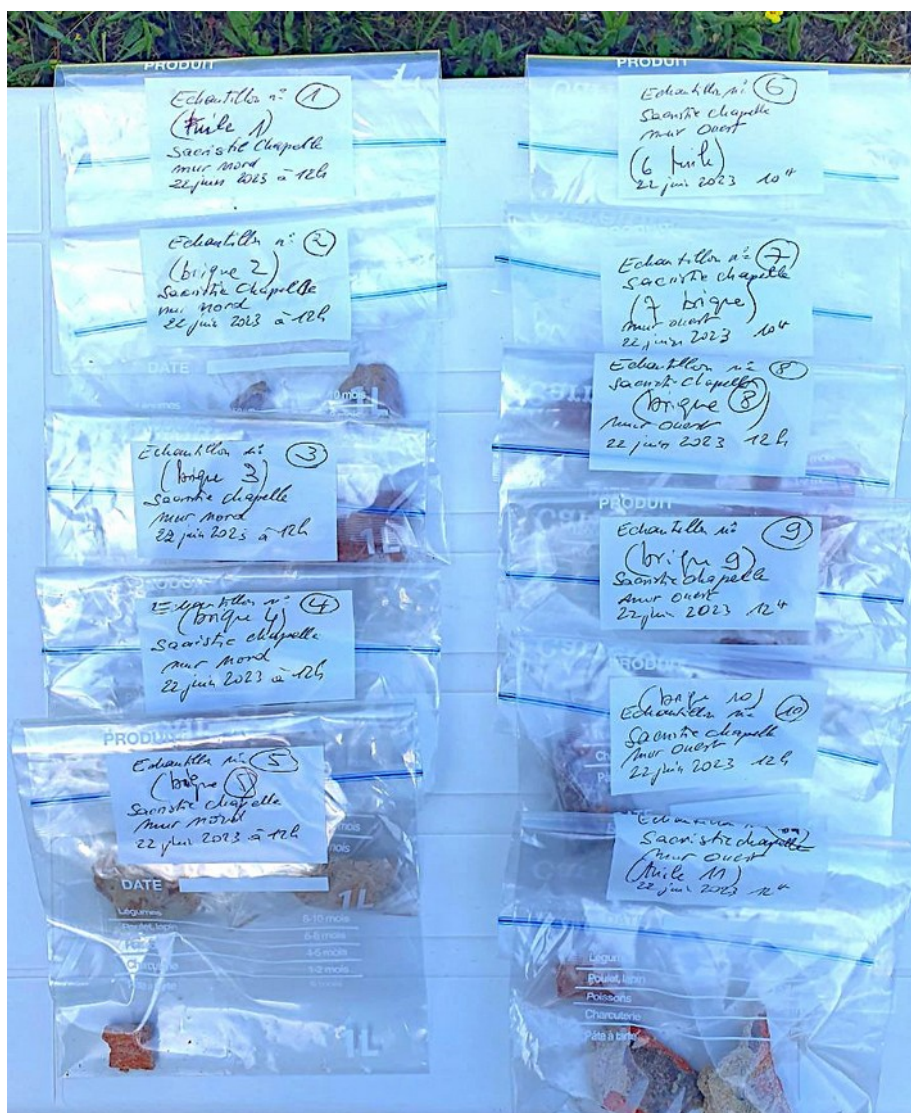 PRODUIT
Echantillon n° 1
(tuile 1)
Sacristie Chapelle
mur nord
22 juin 2023 à 12h
Echantillon n° 2
(brique 2)
Sacristie Chapelle
mur nord
22 juin 2023 à 12h
DATE
Légumes
10 mois
1L
Echantillon n° 3
(brique 3)
Sacristie chapelle
mur nord
22 juin 2023 à 12h
1L
PRODUIT
Echantillon n° 4
(brique 4)
Sacristie chapelle
mur nord
22 juin 2023 à 12h
PRODUIT
Echantillon n° 5
(brique 5)
Sacristie chapelle
mur nord
22 juin 2023 à 12h
mois
mois
DATE
1L
Légumes 8-10 mois
Poulet, lapin 6-8 mois
4-5 mois
Charcuterie 1-2 mois
Pâte à tarte
1L
PRODUIT
Echantillon n° 6
Sacristie chapelle
mur Ouest
(6 tuile)
22 juin 2023 10H
Echantillon n° 7
Sacristie chapelle
(7 brique)
mur ouest
22 juin 2023 10H
Echantillon n° 8
Sacristie chapelle
(brique 8)
mur Ouest
22 juin 2023 12h
PRODUIT
Echantillon n° 9
(brique 9)
Sacristie chapelle
mur Ouest
22 juin 2023 12H
PRODUIT
(brique 10)
Echantillon n° 10
Sacristie chapelle
mur Ouest
22 juin 2023 12h
Echantillon n°
Sacristie chapelle
mur Ouest
(tuile 11)
22 juin 2023 12H
DATE
Légumes
Poulet, lapin
Poissons
Charcuterie
Pâte à tarte